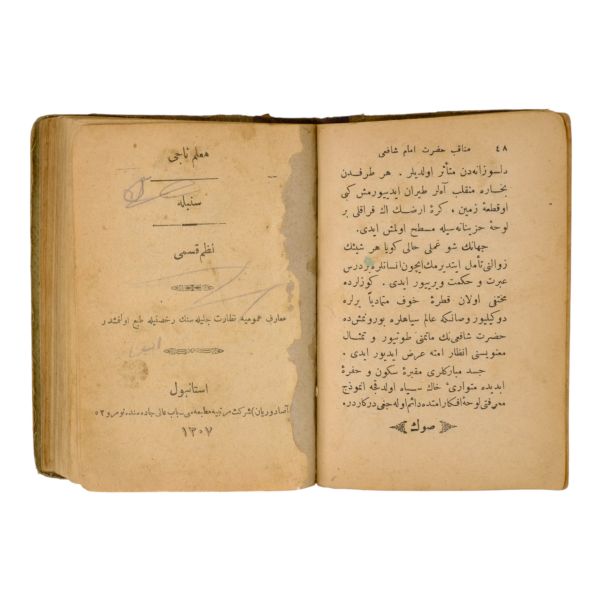 ٤٨ مناقب حضرت امام شافعی
دلسوزانه‌دن متأثر اولدیلر . هر طرفدن
بخاره منقلب آهلر طیران ایدییورمش کبی
اوقطعهٔ زمین ، کرهٔ ارضك اك فراقلی بر
لوحهٔ حزینانه‌سیله مسطح اولمش ایدی .
جهانك شو عملی حالی کویا هر شیئك
زوالنی تأمل ایتدیرمك ایچون انسانلره بر درس
عبرت و حکمت ویرییور ایدی . کوزلرده
مختفی اولان قطرهٔ خوف متمادیاً یرلره
دوکیلیور و صانکه عالم سیاهلره بورونمش‌ده
حضرت شافعی‌نك ماتمنی طوتییور و تمثال
معنویسنی انظار امته عرض ایدیور ایدی .
جسد مبارکلری مقبرهٔ سکون و حفرهٔ
ابدیده متواریٔ خاك سیاه اولدقجه انموذج
معرفتی لوحهٔ افکار امتده دائم اوله‌جغی درکاردر .
صوك
معلم ناجی
سنبله
نظم قسمی
معارف عمومیه نظارت جلیله‌سنك رخصتیله طبع اولنمشدر
استانبول
(آصادوریان) شرکت مرتبیه مطبعه‌سی — باب عالی جاده‌سنده نومرو ٥٢
١٣٠٧